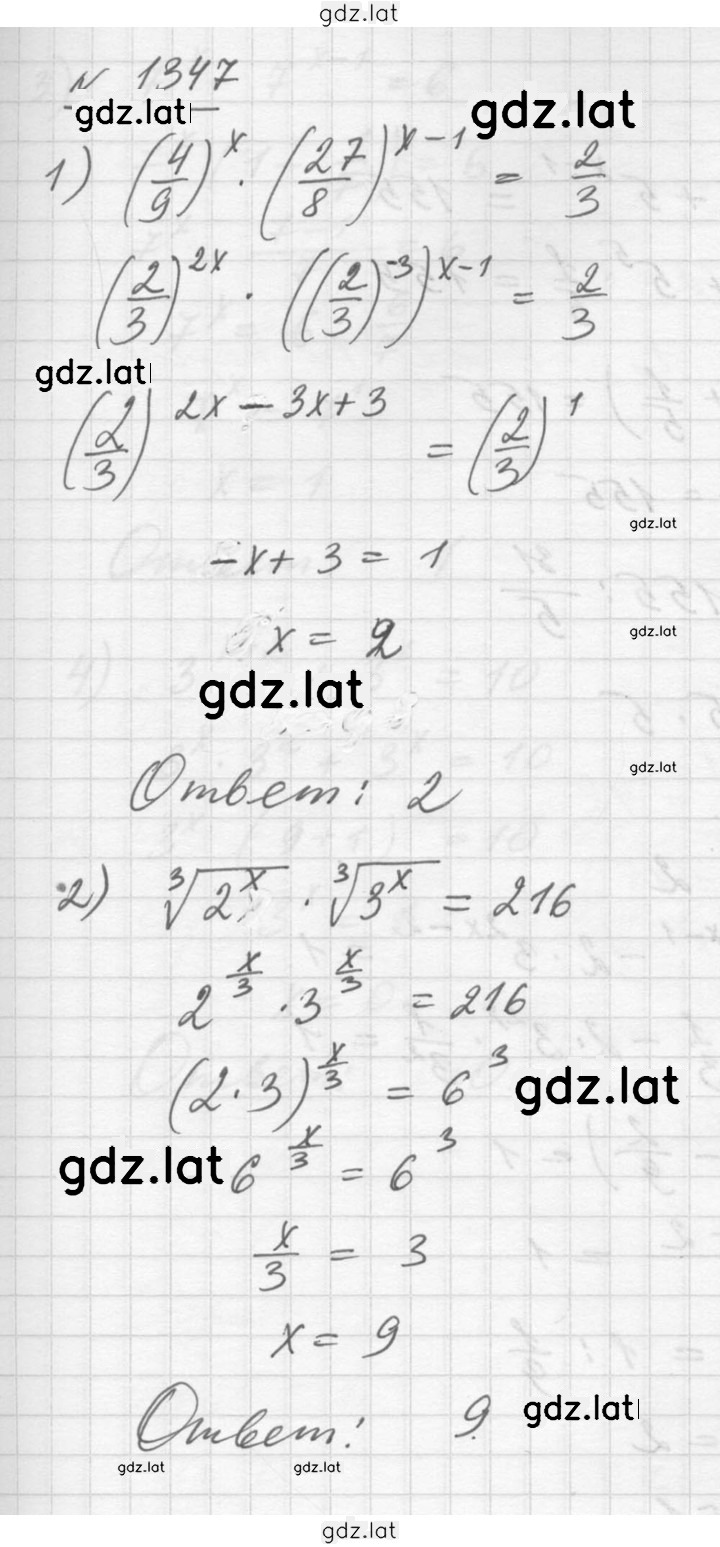 gdz.lat
№ 1347
gdz.lat gdz.lat
1) (4/9)^x · (27/8)^(x-1) = 2/3
(2/3)^(2x) · ((2/3)^(-3))^(x-1) = 2/3
gdz.lat
(2/3)^(2x-3x+3) = (2/3)^1
gdz.lat
-x+3 = 1
gdz.lat
x = 2
gdz.lat
gdz.lat
Ответ: 2
2) ∛(2^x) · ∛(3^x) = 216
2^(x/3) · 3^(x/3) = 216
(2·3)^(x/3) = 6^3
gdz.lat
gdz.lat
6^(x/3) = 6^3
x/3 = 3
x = 9
Ответ: 9
gdz.lat
gdz.lat gdz.lat
gdz.lat